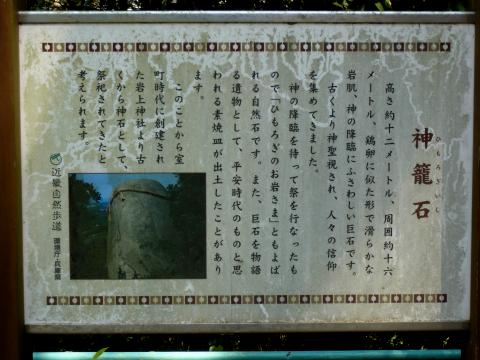 神籠石
ひもろぎいし
高さ約十二メートル、周囲約十六
メートル、鶏卵に似た形で滑らかな
岩肌、神の降臨にふさわしい巨石です。
古くより神聖視され、人々の信仰
を集めてきました。
神の降臨を待って祭を行なったも
ので「ひもろぎのお岩さま」ともよば
れる自然石です。また、巨石を物語
る遺物として、平安時代のものと思
われる素焼皿が出土したことがあり
ます。
このことから室
町時代に創建され
た岩上神社より古
くから神石として、
祭祀されてきたと
考えられます。
近畿自然歩道
環境庁・兵庫県